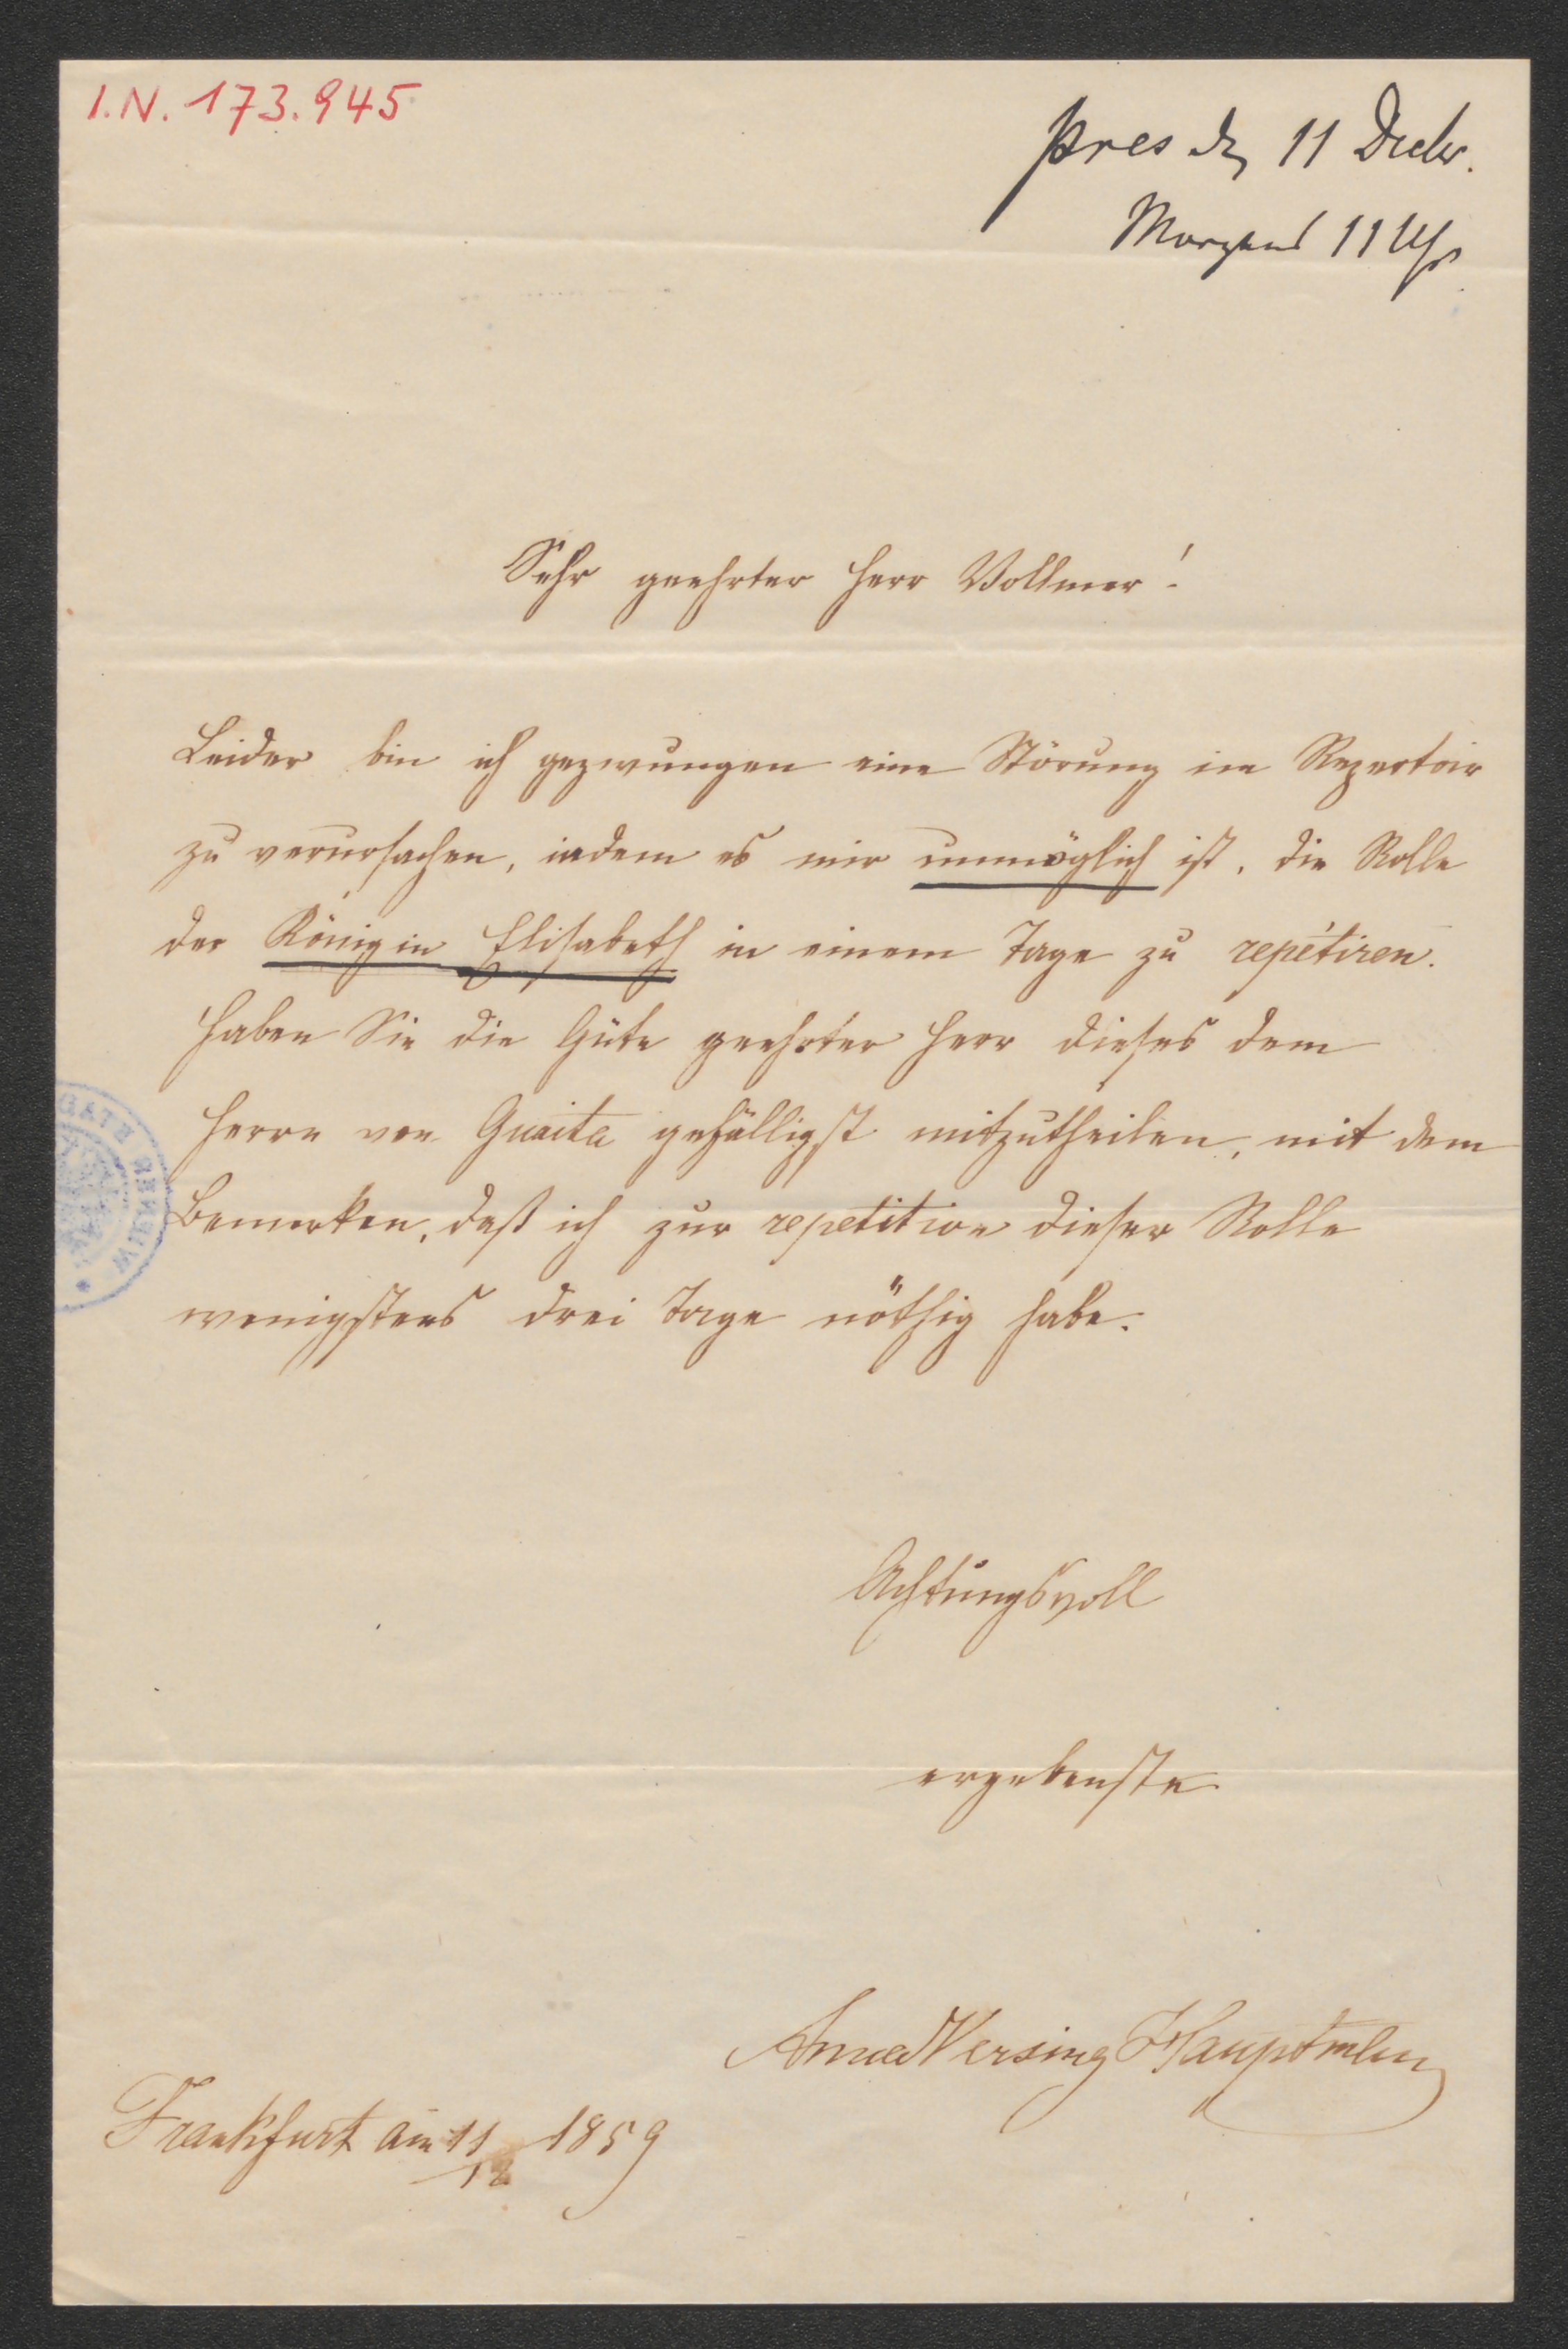 I.N. 173.945
pres d. 11 Decbr.
Morgens 11 Uhr
Sehr geehrter Herr Vollmer!
Leider bin ich gezwungen eine Störung im Repertoir
zu verursachen, indem es mir unmöglich ist, die Rolle
der Königin Elisabeth in einem Tage zu repétiren.
Haben Sie die Güte geehrter Herr dieses dem
Herrn von Guaita gefälligst mitzutheilen, mit dem
Bemerken, daß ich zur repetition dieser Rolle
wenigstens drei Tage nöthig habe.
Achtungsvoll
ergebenste
Anna Versing Hauptmann
Frankfurt am 11/12 1859